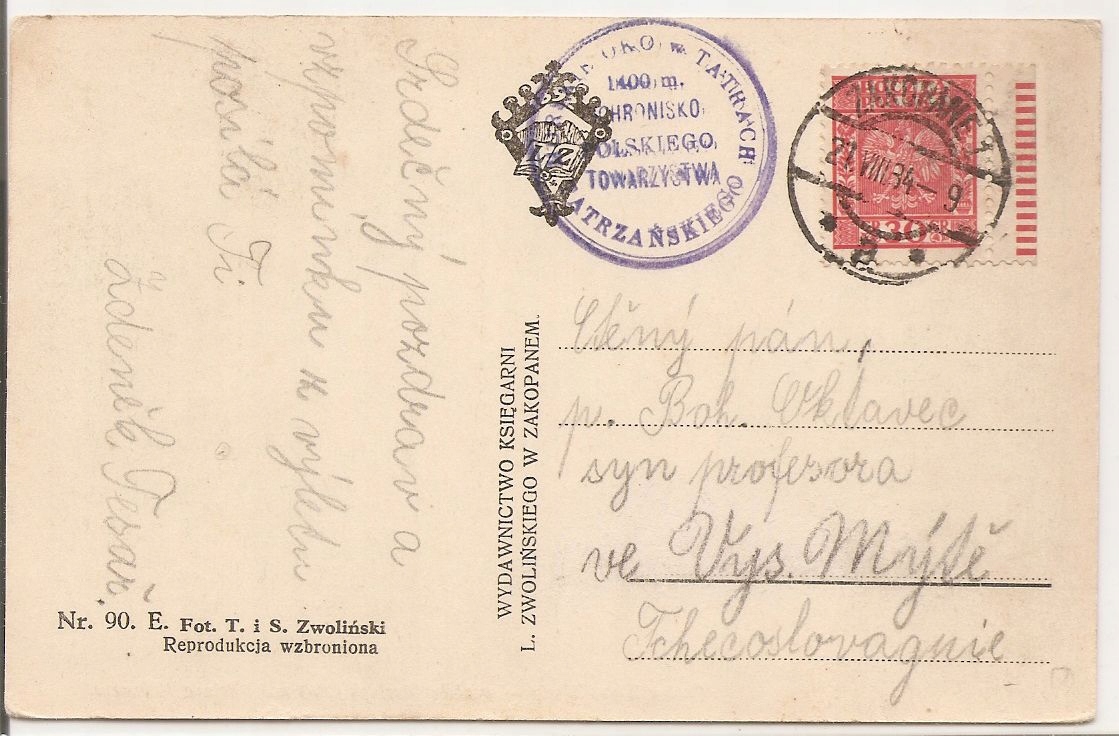 Srdečný pozdrav a
vzpomínku z výletu
posílá Ti
Zdeněk Tesař.
Nr. 90. E. Fot. T. i S. Zwoliński
Reprodukcja wzbroniona
WYDAWNICTWO KSIĘGARNI
L. ZWOLIŃSKIEGO W ZAKOPANEM.
L Z
OKO w TATRACH
1400 m.
SCHRONISKO
POLSKIEGO
TOWARZYSTWA
TATRZAŃSKIEGO
ZAKOPANE 1
21 VIII 34 - 9
a
30 30
Ctěný pán,
p. Boh. Oktavec
syn profesora
ve Vys. Mýtě
Tchecoslovaquie